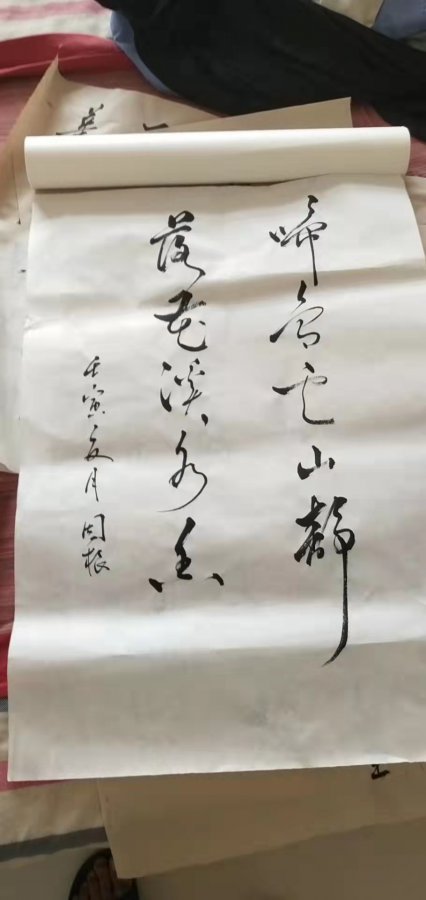 啼鸟云山静
落花溪水香
壬寅夏月 根